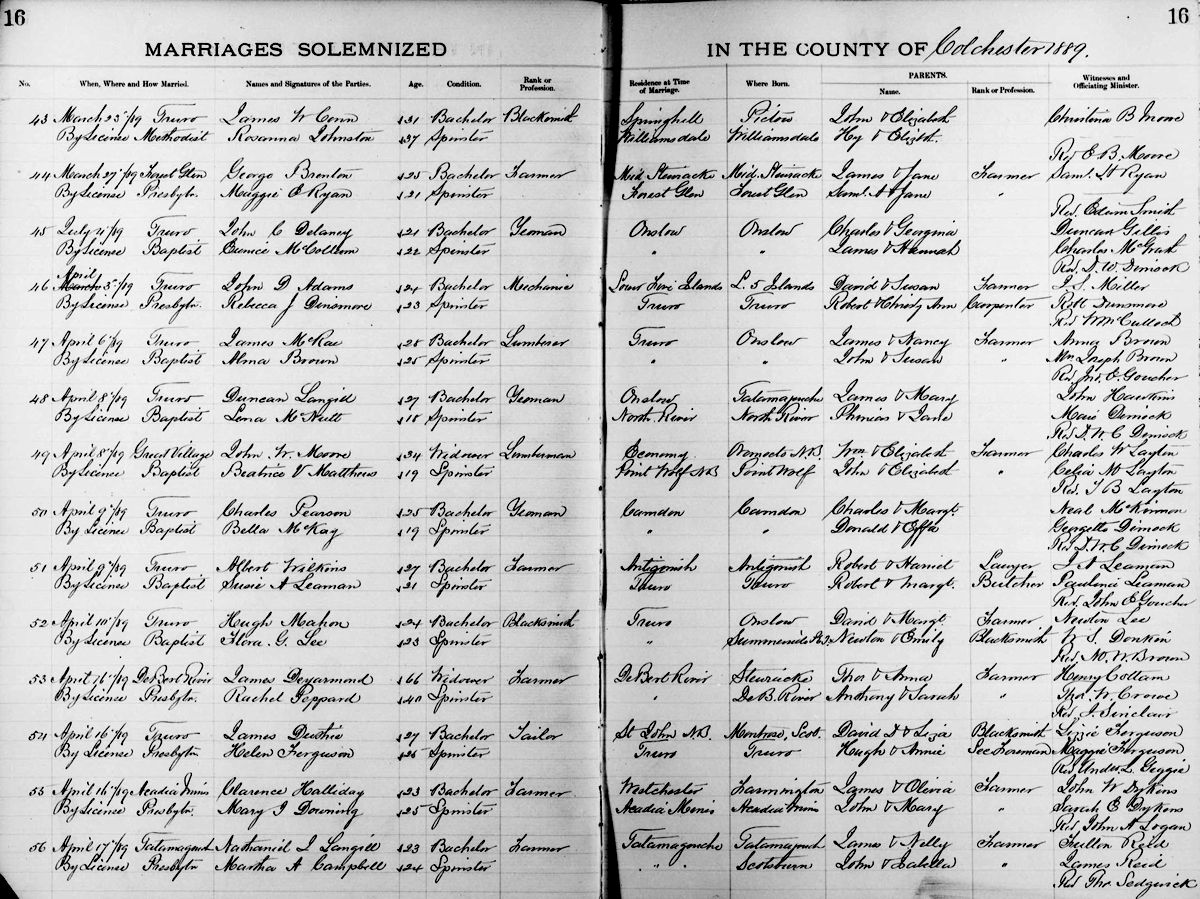 16 16
MARRIAGES SOLEMNIZED IN THE COUNTY OF Colchester 1889.
No. When, Where and How Married. Names and Signatures of the Parties. Age. Condition. Rank or Profession. Residence at Time of Marriage. Where Born. PARENTS. Name. Rank or Profession. Witnesses and Officiating Minister.
43 March 23"/89 Truro James W Conn 31 Bachelor Blacksmith Springhill Pictou John & Elizabeth Christina B Moore
By License Methodist Roxanna Johnston 37 Spinster Williamsdale Williamsdale Hy & Elizbt.
Rev E. B. Moore
44 March 27"/89 Forest Glen George Brenton 25 Bachelor Farmer Mid. Stewiacke Mid. Stewiacke James & Jane Farmer Saml. Ryan
By License Presbytn Maggie E Ryan 21 Spinster Forest Glen Forest Glen Saml. A & Jane "
Rev. Edwin Smith
45 Truro John C Delaney 21 Bachelor Yeoman Onslow Onslow Charles & Georgina Duncan Gillis
By License Baptist Eunice McCollum 22 Spinster " " James & Hannah Charles McGrath
Rev. D. W. Dimock
April
46 March 3"/89 Truro John D Adams 24 Bachelor Mechanic Lower Five Islands L. 5 Islands David & Susan Farmer J. S. Miller
By License Presbytn. Rebecca J Dinsmore 23 Spinster Truro Truro Robert & Christy Ann Carpenter Robt Dunsmore
Rev. Wm McCulloch
47 April 6"/89 Truro James McRae 28 Bachelor Lumberer Truro Onslow James & Nancy Farmer Annie Brown
By License Baptist Alma Brown 25 Spinster " " John & Susan " Mrs Joseph Brown
Rev. Jno. E. Goucher
48 April 8"/89 Truro Duncan Langill 27 Bachelor Yeoman Onslow Tatamagouche James & Mary John Hawkins
By License Baptist Lena McNutt 18 Spinster North River North River Phinias & Jane Marie Dimock
Rev D. W. C Dimock
49 April 8"/89 Great Village John W. Moore 34 Widower Lumberman Economy Oromocto N.B. Wm & Elizabeth Farmer Charles W Layton
By License Baptist Beatrice V Matthews 19 Spinster Point Wolf N.B Point Wolf John & Elizabeth " Celia M Layton
Rev. T B Layton
50 April 9"/89 Truro Charles Pearson 25 Bachelor Yeoman Camdon Camdon Charles & Margt. Neal McKinnon
By License Baptist Bella McKay 19 Spinster " " Donald & Effa Georgette Dimock
Rev D. W. C Dimock
51 April 9"/89 Truro Albert Wilkins 27 Bachelor Farmer Antigonish Antigonish Robert & Harriet Lawyer J A Leaman
By License Baptist Susie A Leaman 31 Spinster Truro Truro Robert & Margt. Butcher Paulenia Leaman
Rev. John E Goucher
52 April 10"/89 Truro Hugh Mahon 24 Bachelor Blacksmith Truro Onslow David & Margt. Farmer Newton Lee
By License Baptist Flora. G. Lee 23 Spinster " Summerside Newton & Emily Blacksmith W S. Donkin
Rev. M. W. Brown
53 April 16"/89 DeBert River James Deyarmond 66 Widower Farmer DeBert River Stewiacke Thos & Anna Farmer Henry Cottam
By License Presbytn. Rachel Peppard 40 Spinster " De B. River Anthony & Sarah " Thos. W. Crowe
Rev. J. Sinclair
54 April 16"/89 Truro James Duthie 27 Bachelor Tailor St John N.B. Montrose, Scot. David D & Liza Blacksmith Lizzie Ferguson
By License Presbytn Helen Ferguson Spinster Truro Truro Hugh & Annie Sec Foreman Maggie Ferguson
Rev. Andw. L Geggie
55 April 16"/89 Acadia Mines Clarence Halliday 23 Bachelor Farmer Westchester Farmington James & Olivia Farmer John W Dykins
By License Presbytn. Mary J Downing 25 Spinster Acadia Mines Acadia Mines John & Mary " Sarah E Dykens
Rev. John A Logan
56 April 17"/89 Tatamagouch Nathaniel J Langill 23 Bachelor Farmer Tatamagouche Tatamagouch James & Nelly Farmer Fullton Reid
By License Presbytn Martha A Campbell 24 Spinster " " Scotsburn John & Isabella " James Reid
Rev Thos. Sedgwick